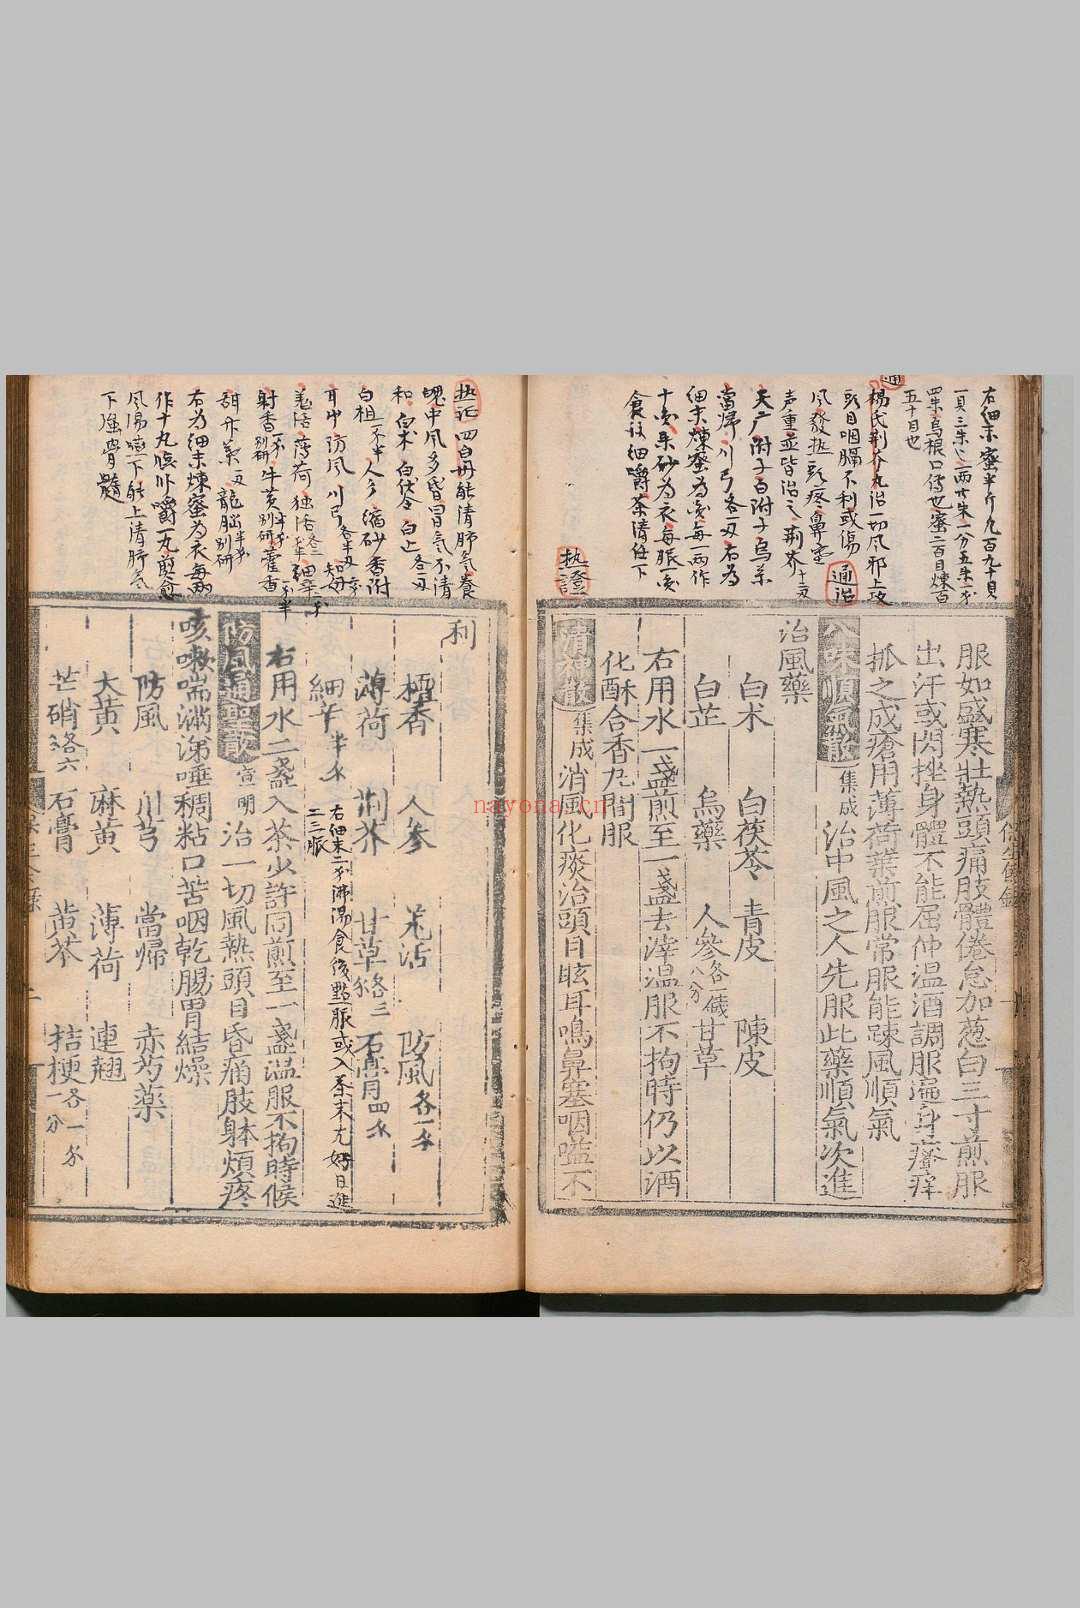 通
右細末蜜半斤九百九十具
五十日也
楊氏荊芥丸治一切風邪上攻
頭目咽膈不利或傷
風發热頭疼鼻塞
声重並皆治之荊芥十二刄
通治
天广附子白附子乌茶
當帰川弓各一刄右為
細末煉蜜為丸每一两作
十丸朱砂为衣每服一丸
食後細嚼茶清任下
热證
服如盛寒壯熱頭痛肢體倦怠加葱白三寸煎服
出汗或閃挫身體不能屈伸温酒調服遍身𤻞痒
抓之成瘡用薄荷葉煎服常服能踈風順氣
八味順氣散集成治中風之人先服此藥順氣次進
治風藥
白术 白茯苓 青皮 陳皮
白芷 烏藥 人參各一錢 甘草八分
右用水一盞煎至一盞去滓温服不拘時仍以酒
化酥合香九間服
清神散集成消風化痰治頭目眩耳鳴鼻塞咽嗌不
热証四白丹能清肺氣養
魄中風多昏冒氣不清
和白术白茯令白止各一刄
白檀一不半人參縮砂香附
耳中防风川弓各半刄知母
羌活薄荷独活各二不半細辛
射香一不別研牛黄半不別研藿香一不半
甜竹葉一刄龍脳半不別研
右为細末煉蜜为衣每两
作十丸临卧嚼一丸煎愈
風湯嚥下能上清肺氣
下強骨髓
利
檀香 人參 羌活 防風各一分
薄荷 荊芥 甘草各三分 石膏四分
細辛半分
右細末二不沸湯食後點服或入茶末尤好日進
二三服
右用水二盞入茶少許同煎至一盞温服不拘時候
防風通聖散宣明治一切風熱頭目昏痛肢躰煩疼
咳嗽喘滿涕唾稠粘口苦咽乾腸胃結燥
防風 川芎 當帰 赤芍藥
大黄 麻黄 薄荷 連翹
芒硝各六 石膏 黄芩 桔梗各一分